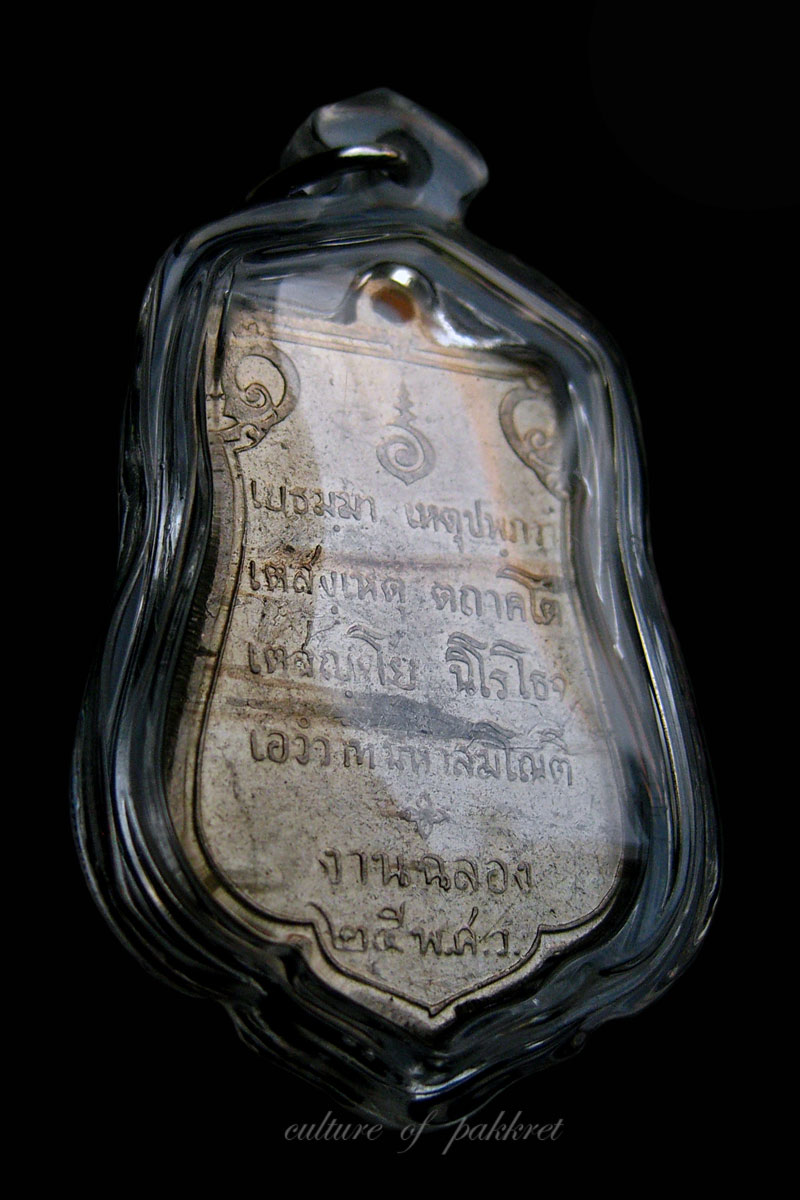 เยธมฺมา เหตุปพฺภวา
เตสํเหตุ ตถาคโต
เตสญฺจโย นิโรโธจ
เอวํวาทีมหาสมโณติ
งานฉลอง
๒๕ พ.ศ.ว.
culture of pakkret